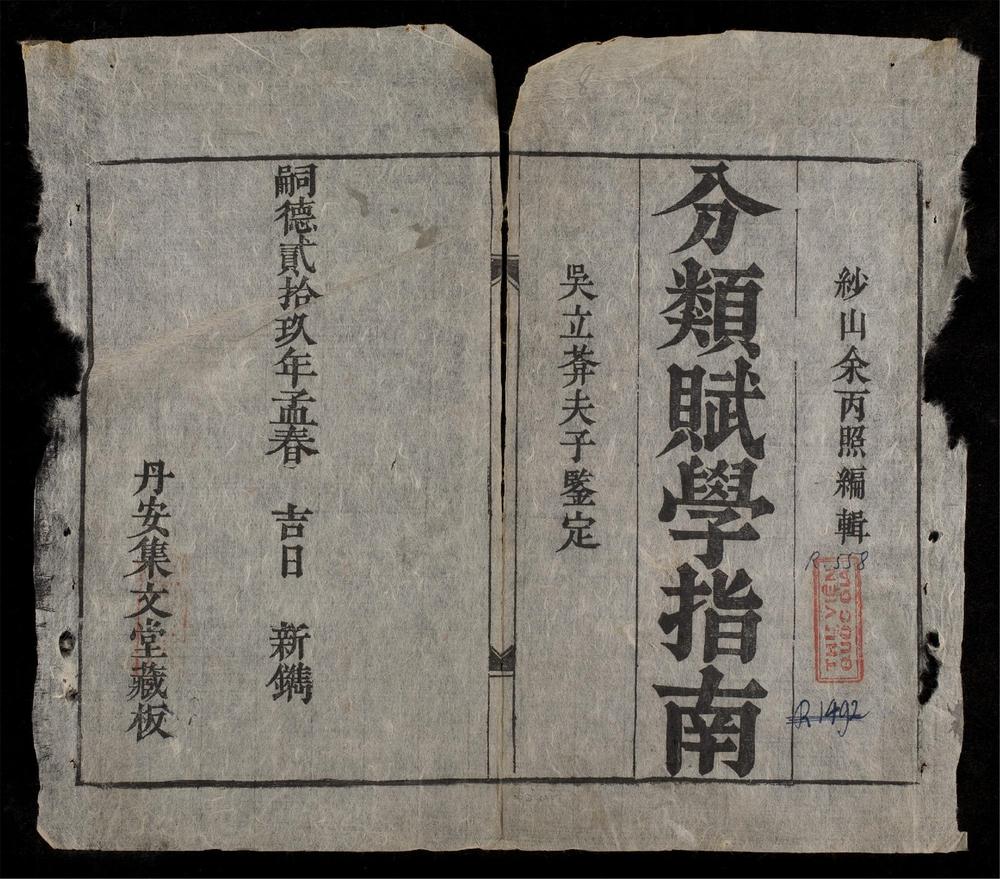 紗山余丙照編輯
分類賦學指南
吳立莾夫子鍳定
嗣德貳拾玖年孟春 吉日 新鐫
丹安集文堂藏板
R.558
THƯ VIỆN
QUỐC GIA
R1492
8